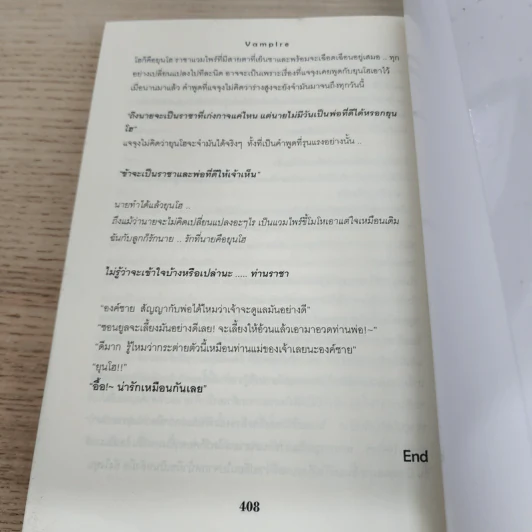 Vampire
โฮก็คือยุนโฮ ราชาแวมไพร์ที่มีสายตาที่เย็นชาและพร้อมจะเชือดเฉือนอยู่เสมอ .. ทุก
อย่างเปลี่ยนแปลงไปทีละนิด อาจจะเป็นเพราะเรื่องที่แจจุงเคยพูดกับยุนโฮเอาไว้
เมื่อนานมาแล้ว คำพูดที่แจจุงไม่คิดว่าร่างสูงจะยังจำมันมาจนถึงทุกวันนี้
"ถึงนายจะเป็นราชาที่เก่งกาจแค่ไหน แต่นายไม่มีวันเป็นพ่อที่ดีได้หรอกยุน
โฮ"
แจจุงไม่คิดว่ายุนโฮจะจำมันได้จริงๆ ทั้งที่เป็นคำพูดที่รุนแรงอย่างนั้น ..
"ข้าจะเป็นราชาและพ่อที่ดีให้เจ้าเห็น"
นายทำได้แล้วยุนโฮ ..
ถึงแม้ว่านายจะไม่คิดเปลี่ยนแปลงอะไรๆ เป็นแวมไพร์ขี้โมโหเอาแต่ใจเหมือนเดิม
ฉันกับลูกก็รักนาย .. รักที่นายคือยุนโฮ
ไม่รู้ว่าจะเข้าใจบ้างหรือเปล่านะ ..... ท่านราชา
"องค์ชาย สัญญากับพ่อได้ไหมว่าเจ้าจะดูแลมันอย่างดี"
"ชอนยูลจะเลี้ยงมันอย่างดีเลย! จะเลี้ยงให้อ้วนแล้วเอามาอวดท่านพ่อ!~"
"ดีมาก รู้ไหมว่ากระต่ายตัวนี้เหมือนท่านแม่ของเจ้าเลยนะองค์ชาย"
"ยุนโฮ!!"
"อื้อ!~ น่ารักเหมือนกันเลย"
End
408